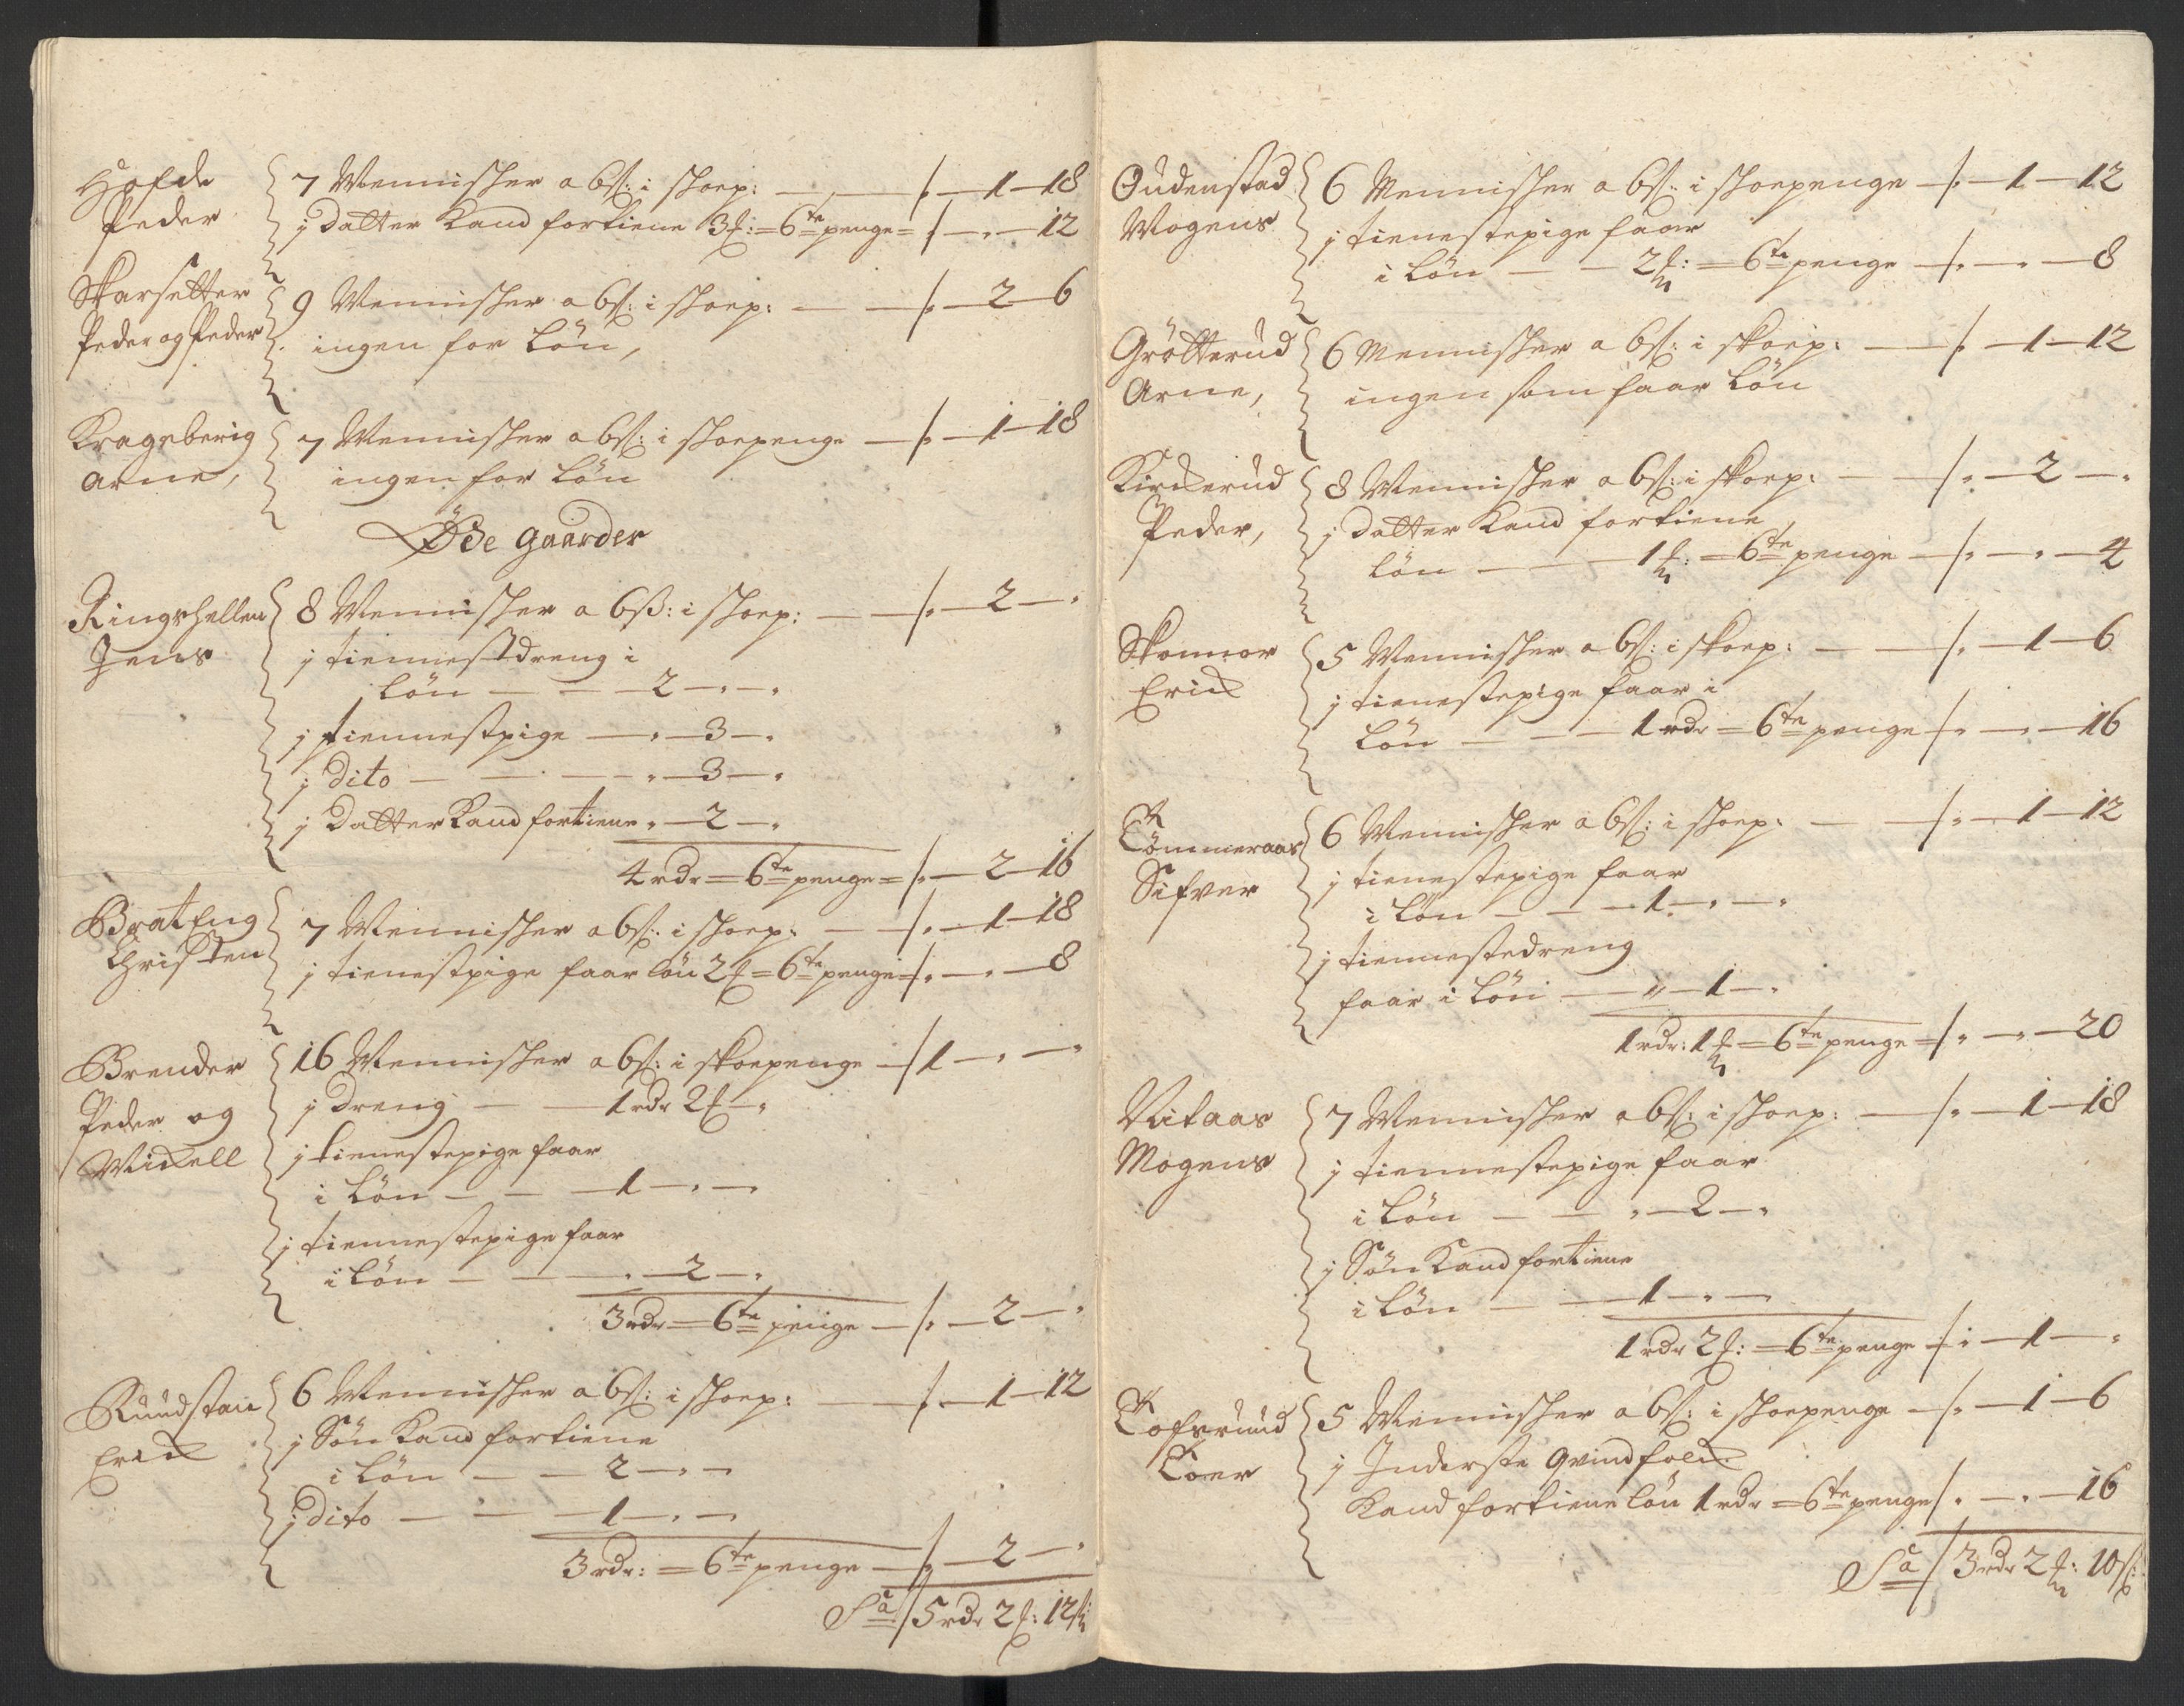 Hofde
Peder
7 Mennisher a 6ß: i shoep: — — /: — 1 — 18
j datter Kand fortiene 3f: = 6te penge = / — „ — 12
Skarsetter
Peder og Peder
9 Mennisher a 6ß: i shoep: — — /: — 2 — 6
ingen for Løn,
Krageberig
Arne,
7 Mennisher a 6ß: i shoepenge — /: — 1 — 18
ingen for Løn
Øde gaarder
Ringshellen
Jens
8 Mennisher a 6ß: i shoep: — — /: — 2 — „
j tiennestdreng i
Løn — — 2 — „ — „
j tiennestpige — „ — 3 — „
j dito — — — „ — 3 — „
j Datter Kand fortiene „ — 2 — „
4 rdr = 6te penge = /: — 2 — 16
BratEng
Christen
7 Mennisher a 6ß: i shoep: — — /: — 1 — 18
j tienestpige faar løn 2f = 6te penge = /: — „ — 8
Brender
Peder og
Mickell
16 Mennisher a 6ß: i skoepenge — / 1 — „ — „
j dreng — — 1 rdr 2f — „
j tienestepige faar
i Løn — — 1 — „ — „
j tiennestepige faar
i Løn — — — „ — 2 — „
3 rdr = 6te penge — /: — 2 — „
Ruudstaie
Erick
6 Mennisher a 6ß: i shoep: — — /: — 1 — 12
j Søn Kand fortiene
i Løn — — 2 — „ — „
j dito — — — 1 — „ — „
3 rdr: = 6te penge — /: — 2 — „
Sa / 5 rdr 2f: 12ß
Oudenstad
Mogens
6 Mennisher a 6ß: i shoepenge — /: — 1 — 12
j tienestepige faar
i Løn — — 2f: = 6te penge — /: — „ — 8
Grøtterud
Arne,
6 Mennisher a 6ß: i skoep: — — /: — 1 — 12
ingen som faar Løn
Kirckerud
Peder,
8 Mennisher a 6ß: i skoep: — — /: — 2 — „
j datter Kand fortiene
Løn — — — 1f: = 6te penge — /: — „ — 4
Skonnor
Erick
5 Mennisher a 6ß: i skoep: — — /: — 1 — 6
j tienestepige faar i
Løn — — — 1 rdr = 6te penge /: — „ — 16
Tømmeraas
Sifver
6 Mennisher a 6ß: i shoep: — — /: — 1 — 12
j tienestepige faar
i Løn — — — 1 — „ — „
j tiennestedreng
faar i Løn — „ — 1 — „
1 rdr: 1f = 6te penge = /: — „ — 20
Vitaas
Mogens
7 Mennisher a 6ß: i shoep: — /: — 1 — 18
j tiennestepige faar
i Løn — — „ — 2 — „
j Søn Kand fortiene
i Løn — — 1 — „ — „
1 rdr 2f: = 6te penge — /: — 1 — „
Tofsruud
Toer
5 Mennisher a 6ß: i shoepenge — /: — 1 — 6
j Inderste qvindfolck
Kand fortiene løn 1 rdr = 6te penge /: — „ — 16
Sa / 3 rdr 2f: 10ß: